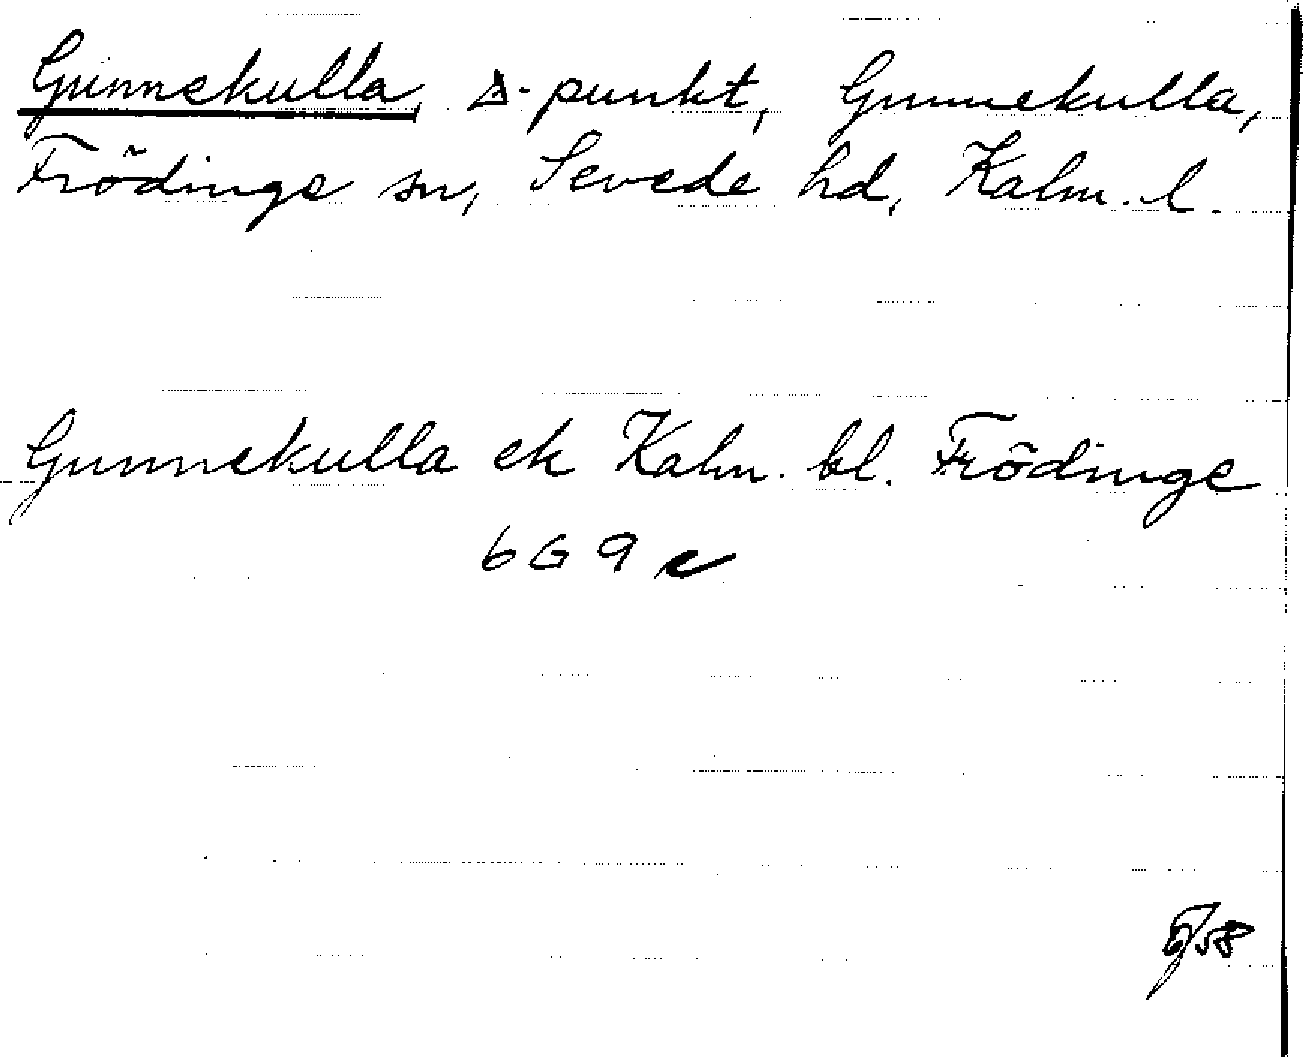 Gunnekulla, Δ-punkt, Gunnekulla,
Frödinge sn, Sevede hd, Kalm. l.
Gunnekulla ek Kalm. bl. Frödinge
6 G 9 c